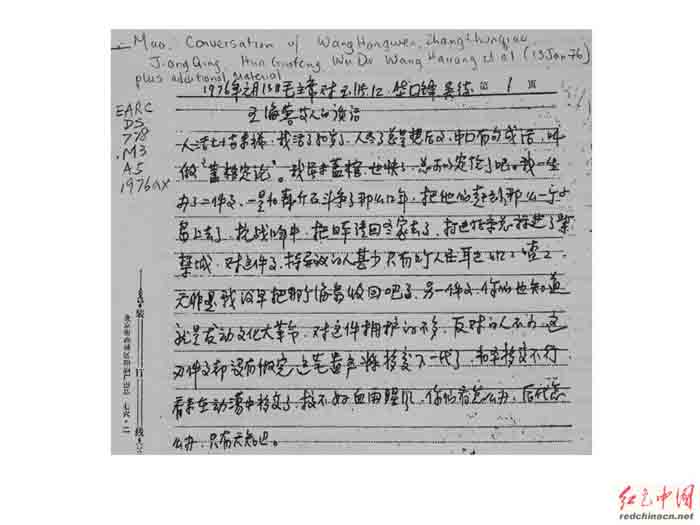 - Mao. Conversation w/ Wang Hongwen, Zhang Chunqiao,
Jiang Qing, Hua Guofeng, Wu De, Wang Hairong et al (13 Jan 76)
plus additional material
1976年元月13日毛主席对王洪文 华国锋 吴德 第 1 页
王海蓉等人的谈话
EARC
DS
778
.M3
A5
1976ax
人活七十古来稀，我活了八十多了，人老了总是想后事，中国有句成语，叫
做“盖棺定论”。我虽未盖棺，也快了，总可以定论了吧。我一生
办了二件事，一是和蒋介石斗争了那么几十年，把他们赶到那么一个小
岛上去了，抗战八年中，把日本请回老家去了，打进北京总算进了紫
禁城，对这件事，持异议的人甚少只有几个人在耳边
无非是我没早把那个海岛收回罢了，另一件事，你们也知道
就是发动文化大革命，对这件拥护的不多，反对的人不少，这
两件事都没有做完，这笔遗产将移交下一代了，和平移交不行
看来在动荡中移交了，搞不好血雨腥风，你们看怎么办，后代怎
么办，只有天知道。
装
订
线
红色中国
redchinacn.net